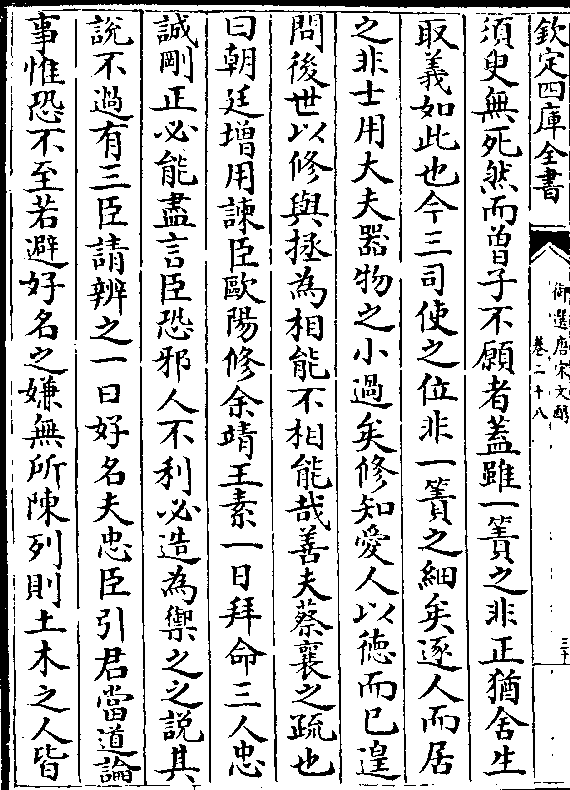 欽定四庫全書
御選唐宋文醇
卷二十八
須臾無死然而曾子不願者蓋雖一簀之非正猶舍生
取義如此也今三司使之位非一簀之細矣逐人而居
之非士用大夫器物之小過矣修知愛人以徳而已遑
問後世以修與拯為相能不相能哉善夫蔡襄之疏也
曰朝廷增用諫臣歐陽修余靖王素一日拜命三人忠
誠剛正必能盡言臣恐邪人不利必造為禦之之說其
說不過有三臣請辨之一曰好名夫忠臣引君當道論
事惟恐不至若避好名之嫌無所陳列則土木之人皆